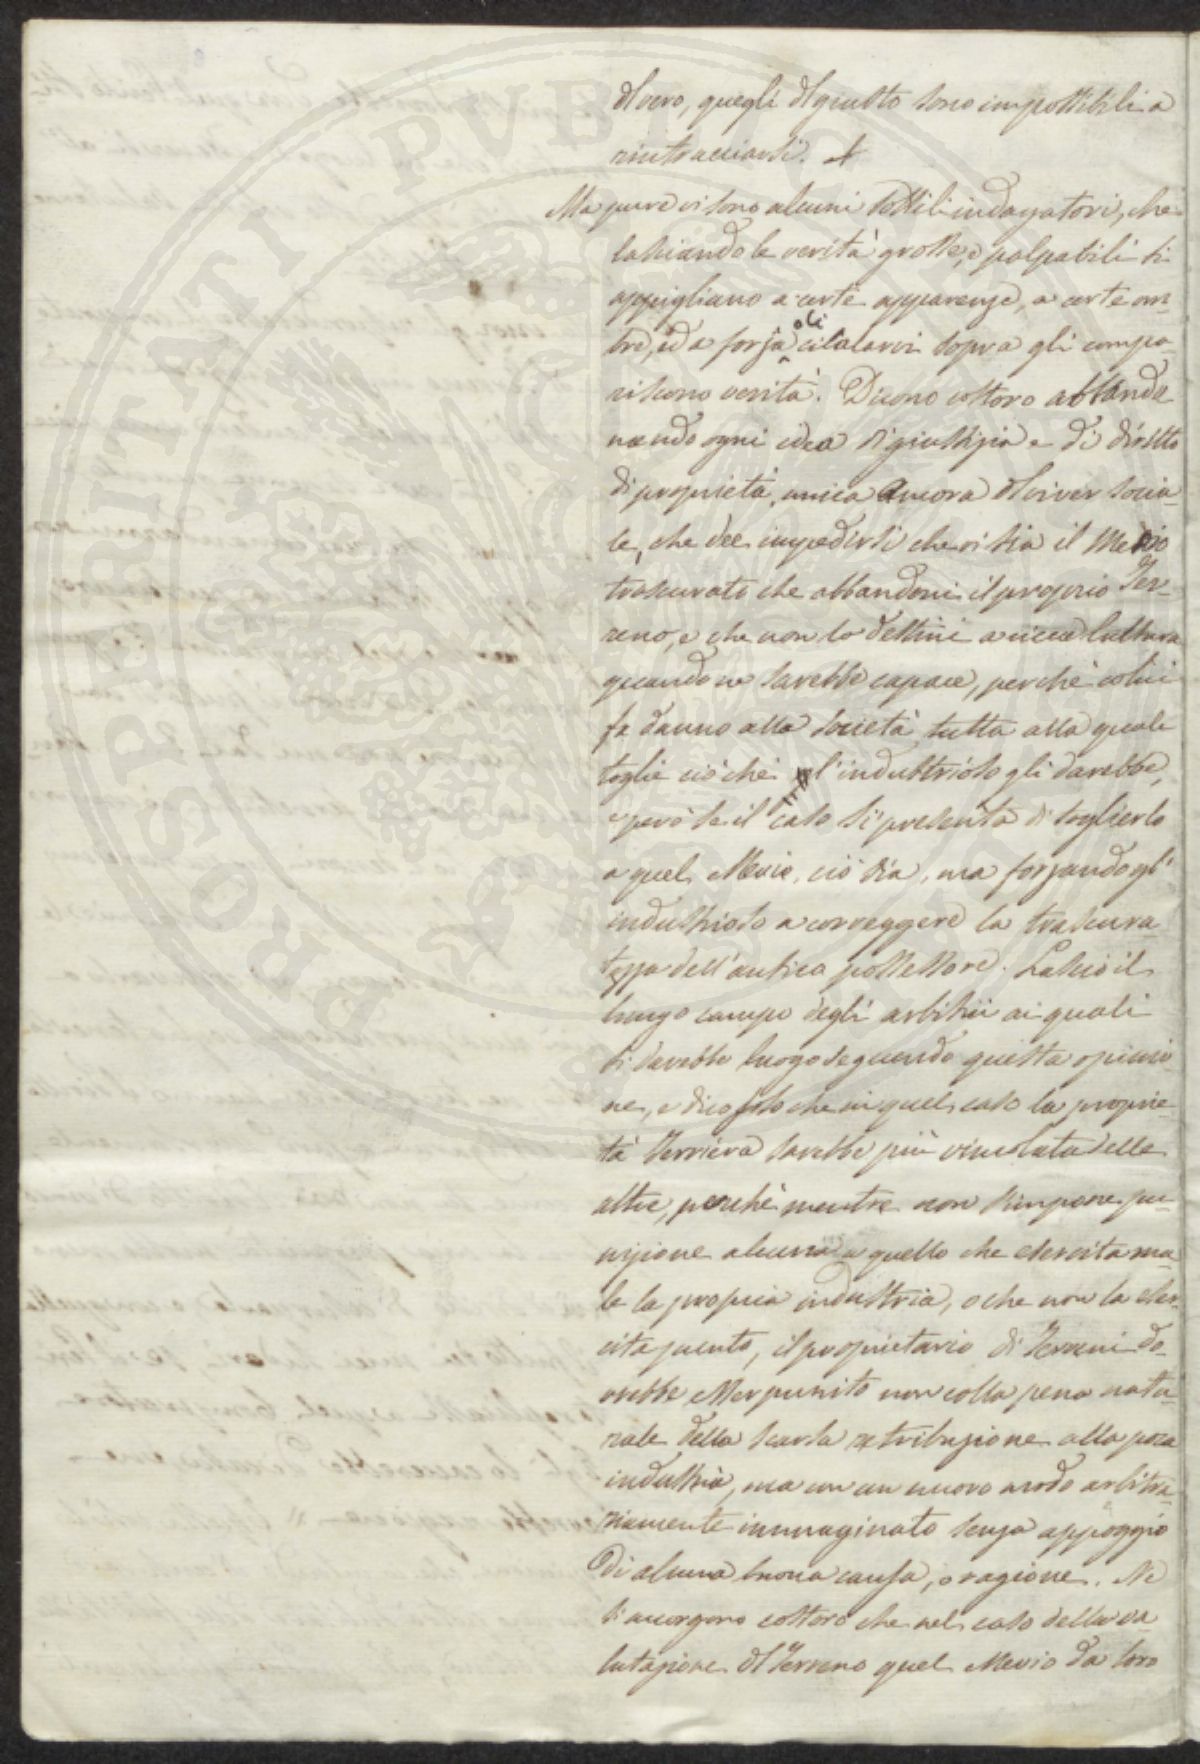 del vero, quegli del giusto sono impossibili a
rintracciarsi.
Ma pure vi sono alcuni sottili indagatori, che
lasciando le verità grosse, e palpabili si
appigliano a certe apparenze, a certe om-
bre, ed a forza di calarvi sopra gli compa-
riscono verità. Dicono costoro abbando
nando ogni idea di giustizia e di diretto
di proprietà, unica ancora del viver socia-
le, che dee impedirsi che vi sia il Mevio
trascurato che abbandoni il proprio Ter-
reno, e che non lo destini a ricca Cultura
quando ne sarebbe capace, perchè colui
fa danno alla società tutta alla quale
toglie ciò che l'industrioso gli darebbe,
e però se il caso si presenta di toglierlo
a quel Mevio, ciò sia, ma forzando gl'
industrioso a correggere la trascura-
tezza dell'antico possessore. Lascio il
lungo campo degli arbitrii ai quali
si darebbe luogo seguendo questa opinio
ne, e dico solo che in quel caso la proprie-
tà Terriera sarebbe più vincolata delle
altre, perchè mentre non s'impone pu-
nizione alcuna a quello che esercita ma-
le la propria industria, o che non la eser-
cita punto, il proprietario di Terreni do-
vrebbe esser punito non colla pena natu-
rale della scarsa retribuzione alla poca
industria, ma con un nuovo modo arbitra-
riamente immaginato senza appoggio
di alcuna buona causa, o ragione. Nè
si accorgono costoro che nel caso della va
lutazione del Terreno quel Mevio da loro
PROSPERITATI PVBLICAE